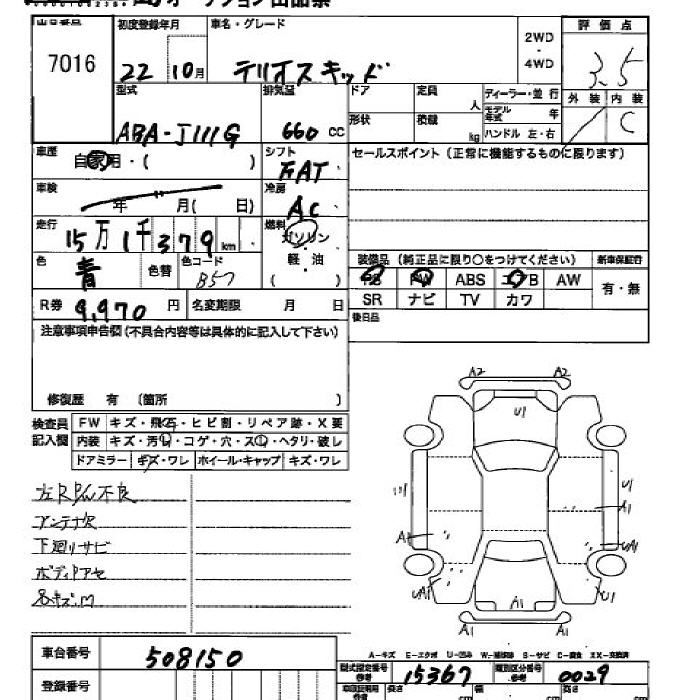 オークション出品票
出品番号 初度登録年月 車名・グレード 2WD・4WD 評価点
7016 22 10月 テリオスキッド 3.5
型式 排気量 ドア 定員 人 ディーラー・並行 外装 内装
ABA-J111G 660 CC 形状 積載 kg モデル年式 年 C
ハンドル 左・右
車歴 自家用・( ) シフト セールスポイント(正常に機能するものに限ります)
AT
車検 年 月( 日) 冷房
AC
走行 15万1千379km 燃料 ガソリン
軽・油
( )
色 青 色替 色コード B57 装備品(純正品に限り○をつけてください) 新車保証書
PS PW ABS エアB AW 有・無
SR ナビ TV カワ
R券 9,970円 名変期限 月 日 後日品
注意事項申告欄(不具合内容等は具体的に記入して下さい)
修復歴 有 (箇所 )
検査員記入欄 FW キズ・飛石・ヒビ割・リペア跡・X要
内装 キズ・汚れ・コゲ・穴・スレ・ヘタリ・破レ
ドアミラー キズ・ワレ ホイール・キャップ キズ・ワレ
左R P/W不良
アンテナ欠
下回リサビ
ボディアセ
各キズ凹
A2 A2
U1
U1
A1
A1
UA1
UA1 U1
A1
A1 A1
A-キズ E-エクボ U-凹み W-補修跡 S-サビ C-腐食 XX-交換済
車台番号 508150 型式指定番号 15367 類別区分番号 0029
登録番号 長さ cm 幅 cm 高さ cm